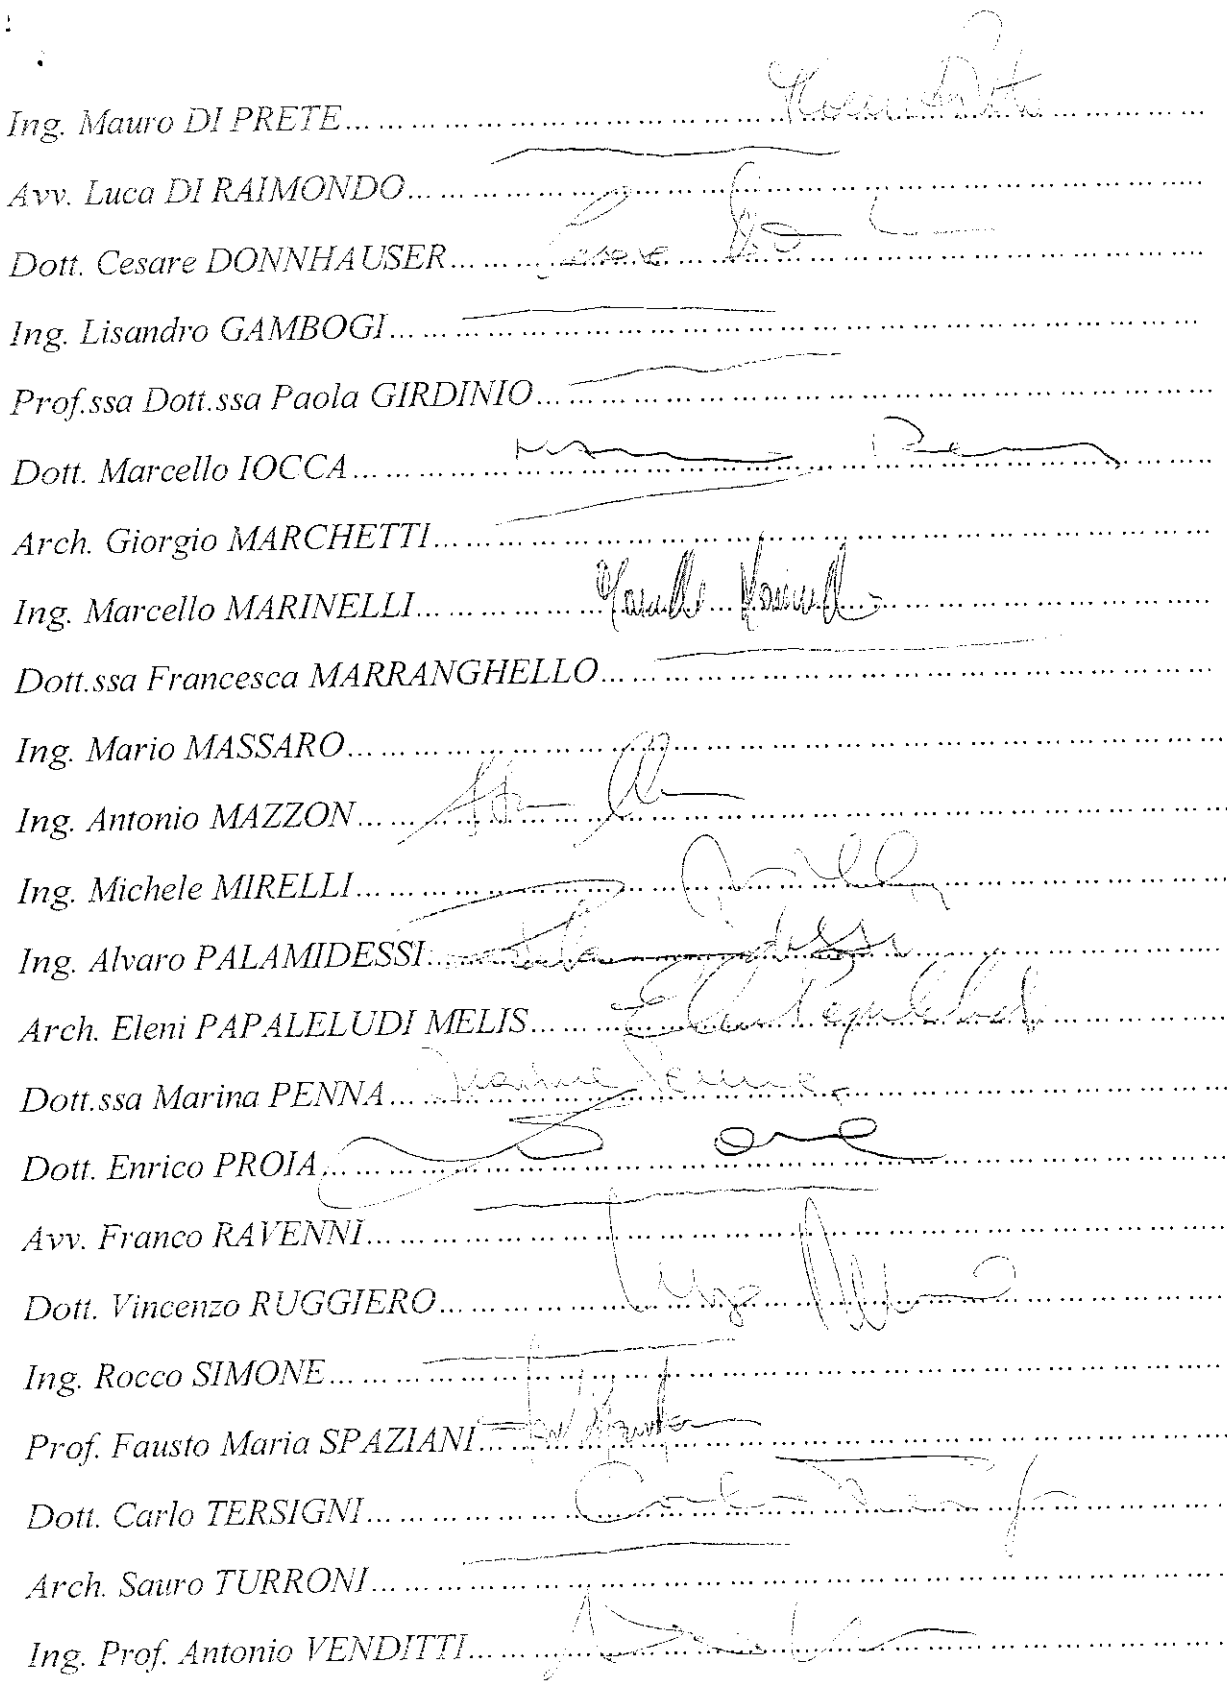 Ing. Mauro DI PRETE
Avv. Luca DI RAIMONDO
Dott. Cesare DONNHAUSER
Ing. Lisandro GAMBOGI
Prof.ssa Dott.ssa Paola GIRDINIO
Dott. Marcello IOCCA
Arch. Giorgio MARCHETTI
Ing. Marcello MARINELLI
Dott.ssa Francesca MARRANGHELLO
Ing. Mario MASSARO
Ing. Antonio MAZZON
Ing. Michele MIRELLI
Ing. Alvaro PALAMIDESSI
Arch. Eleni PAPALELUDI MELIS
Dott.ssa Marina PENNA Marina Penna
Dott. Enrico PROIA
Avv. Franco RAVENNI
Dott. Vincenzo RUGGIERO
Ing. Rocco SIMONE
Prof. Fausto Maria SPAZIANI
Dott. Carlo TERSIGNI
Arch. Sauro TURRONI
Ing. Prof. Antonio VENDITTI